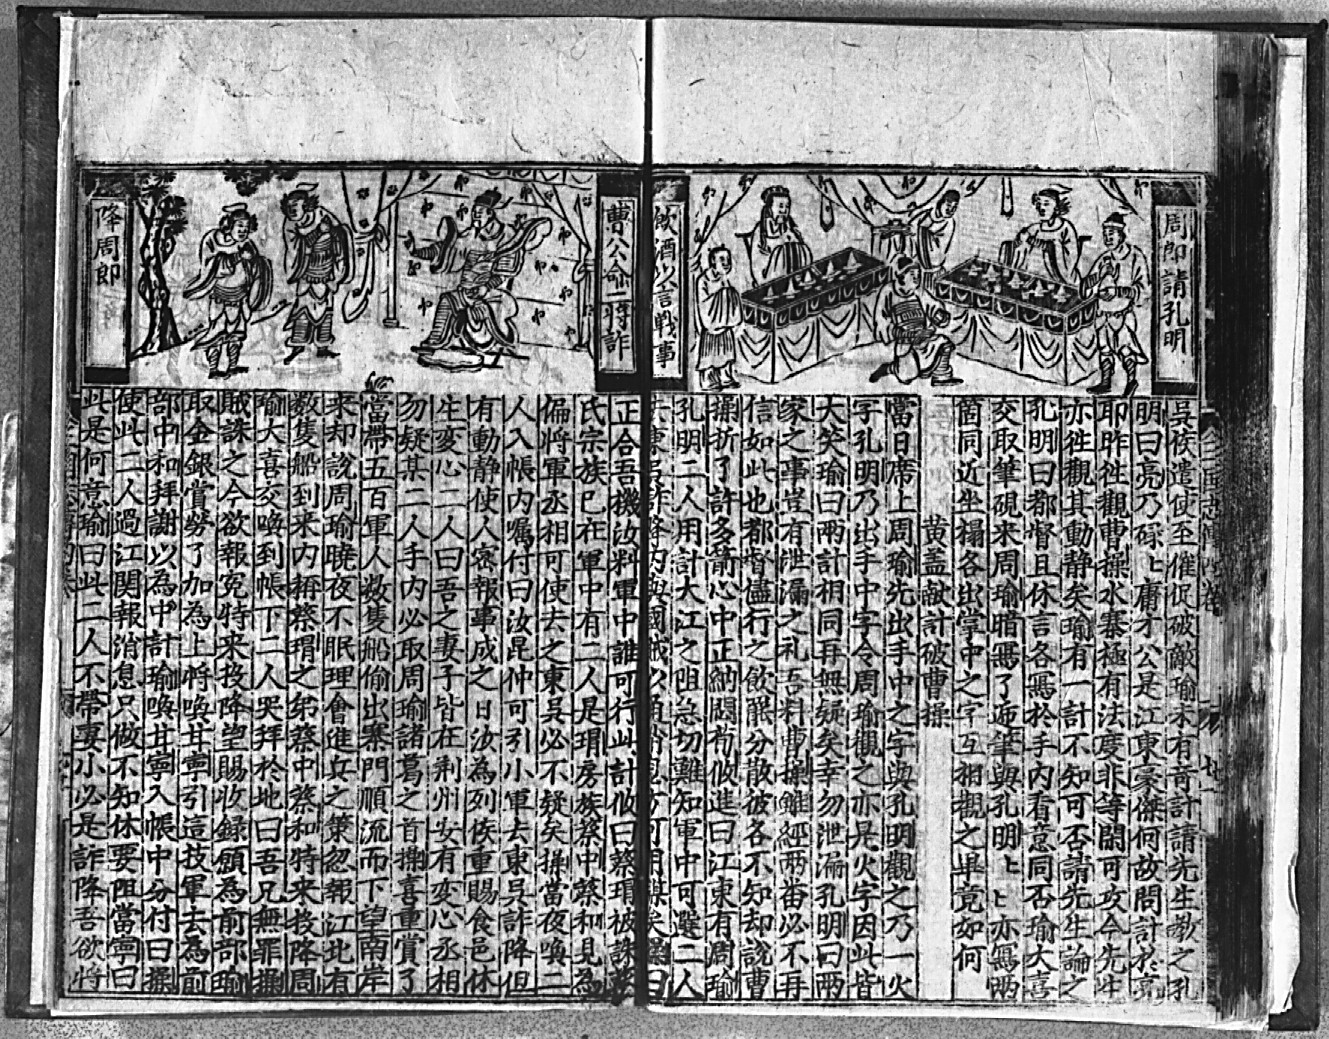 周郎請孔明
飲酒以言戰事
吳侯遣使至催促破敵瑜未有奇計請先生教之孔
明曰亮乃碌〻庸才公是江東豪傑何故問計於亮
耶昨徃觀曹操水寨極有法度非等閑可攻今先生
亦徃觀其動静矣瑜有一計不知可否請先生論之
孔明曰都督且休言各寫於手內看意同否瑜大喜
交取筆硯来周瑜暗寫了遞筆與孔明〻〻亦寫两
箇同近坐榻各出掌中之字互相觀之畢竟如何
黃盖献計破曹操
當日席上周瑜先出手中之字與孔明觀之乃一火
字孔明乃出手中字令周瑜觀之亦是火字因此皆
大笑瑜曰两計相同再無疑矣幸勿泄漏孔明曰两
家之事豈有泄漏之礼吾料曹操雖經两畨必不再
信如此也都督儘行之飲罷分散彼各不知却說曹
操折了許多箭心中正納悶荀攸進曰江東有周瑜
孔明二人用計大江之阻急切難知軍中可選二人
去東吳詐降為國可用謀矣操曰
曹公命二將詐
降周郎
正合吾機汝料軍中誰可行此計攸曰蔡瑁被誅蔡
氏宗族已在軍中有二人是瑁房族蔡中蔡和見為
偏將軍丞相可使去之東吳必不疑矣操當夜喚二
人入帳内嘱付曰汝昆仲可引小軍去東吳詐降但
有動静使人密報事成之日汝為列侯重賜食邑休
生変心二人曰吾之妻子皆在荆州安有変心丞相
勿疑某二人手内必取周瑜諸葛之首操喜重賞了
當帶五百軍人数隻船偷出寨門順流而下望南岸
来却說周瑜曉夜不眠理會進兵之策忽報江北有
数隻船到来内稱蔡瑁之弟蔡中蔡和特来投降周
瑜大喜交喚到帳下二人哭拜於地曰吾兄無罪操
賊誅之今欲報冤特来投降望賜收録願為前部瑜
取金銀賞勞了加為上將喚甘寧引這技軍去為前
部中和拜謝以為中計瑜喚甘寧入帳中分付曰操
使此二人過江関報消息只做不知休要阻當寧曰
此是何意瑜曰此二人不帶妻小必是詐降吾欲將